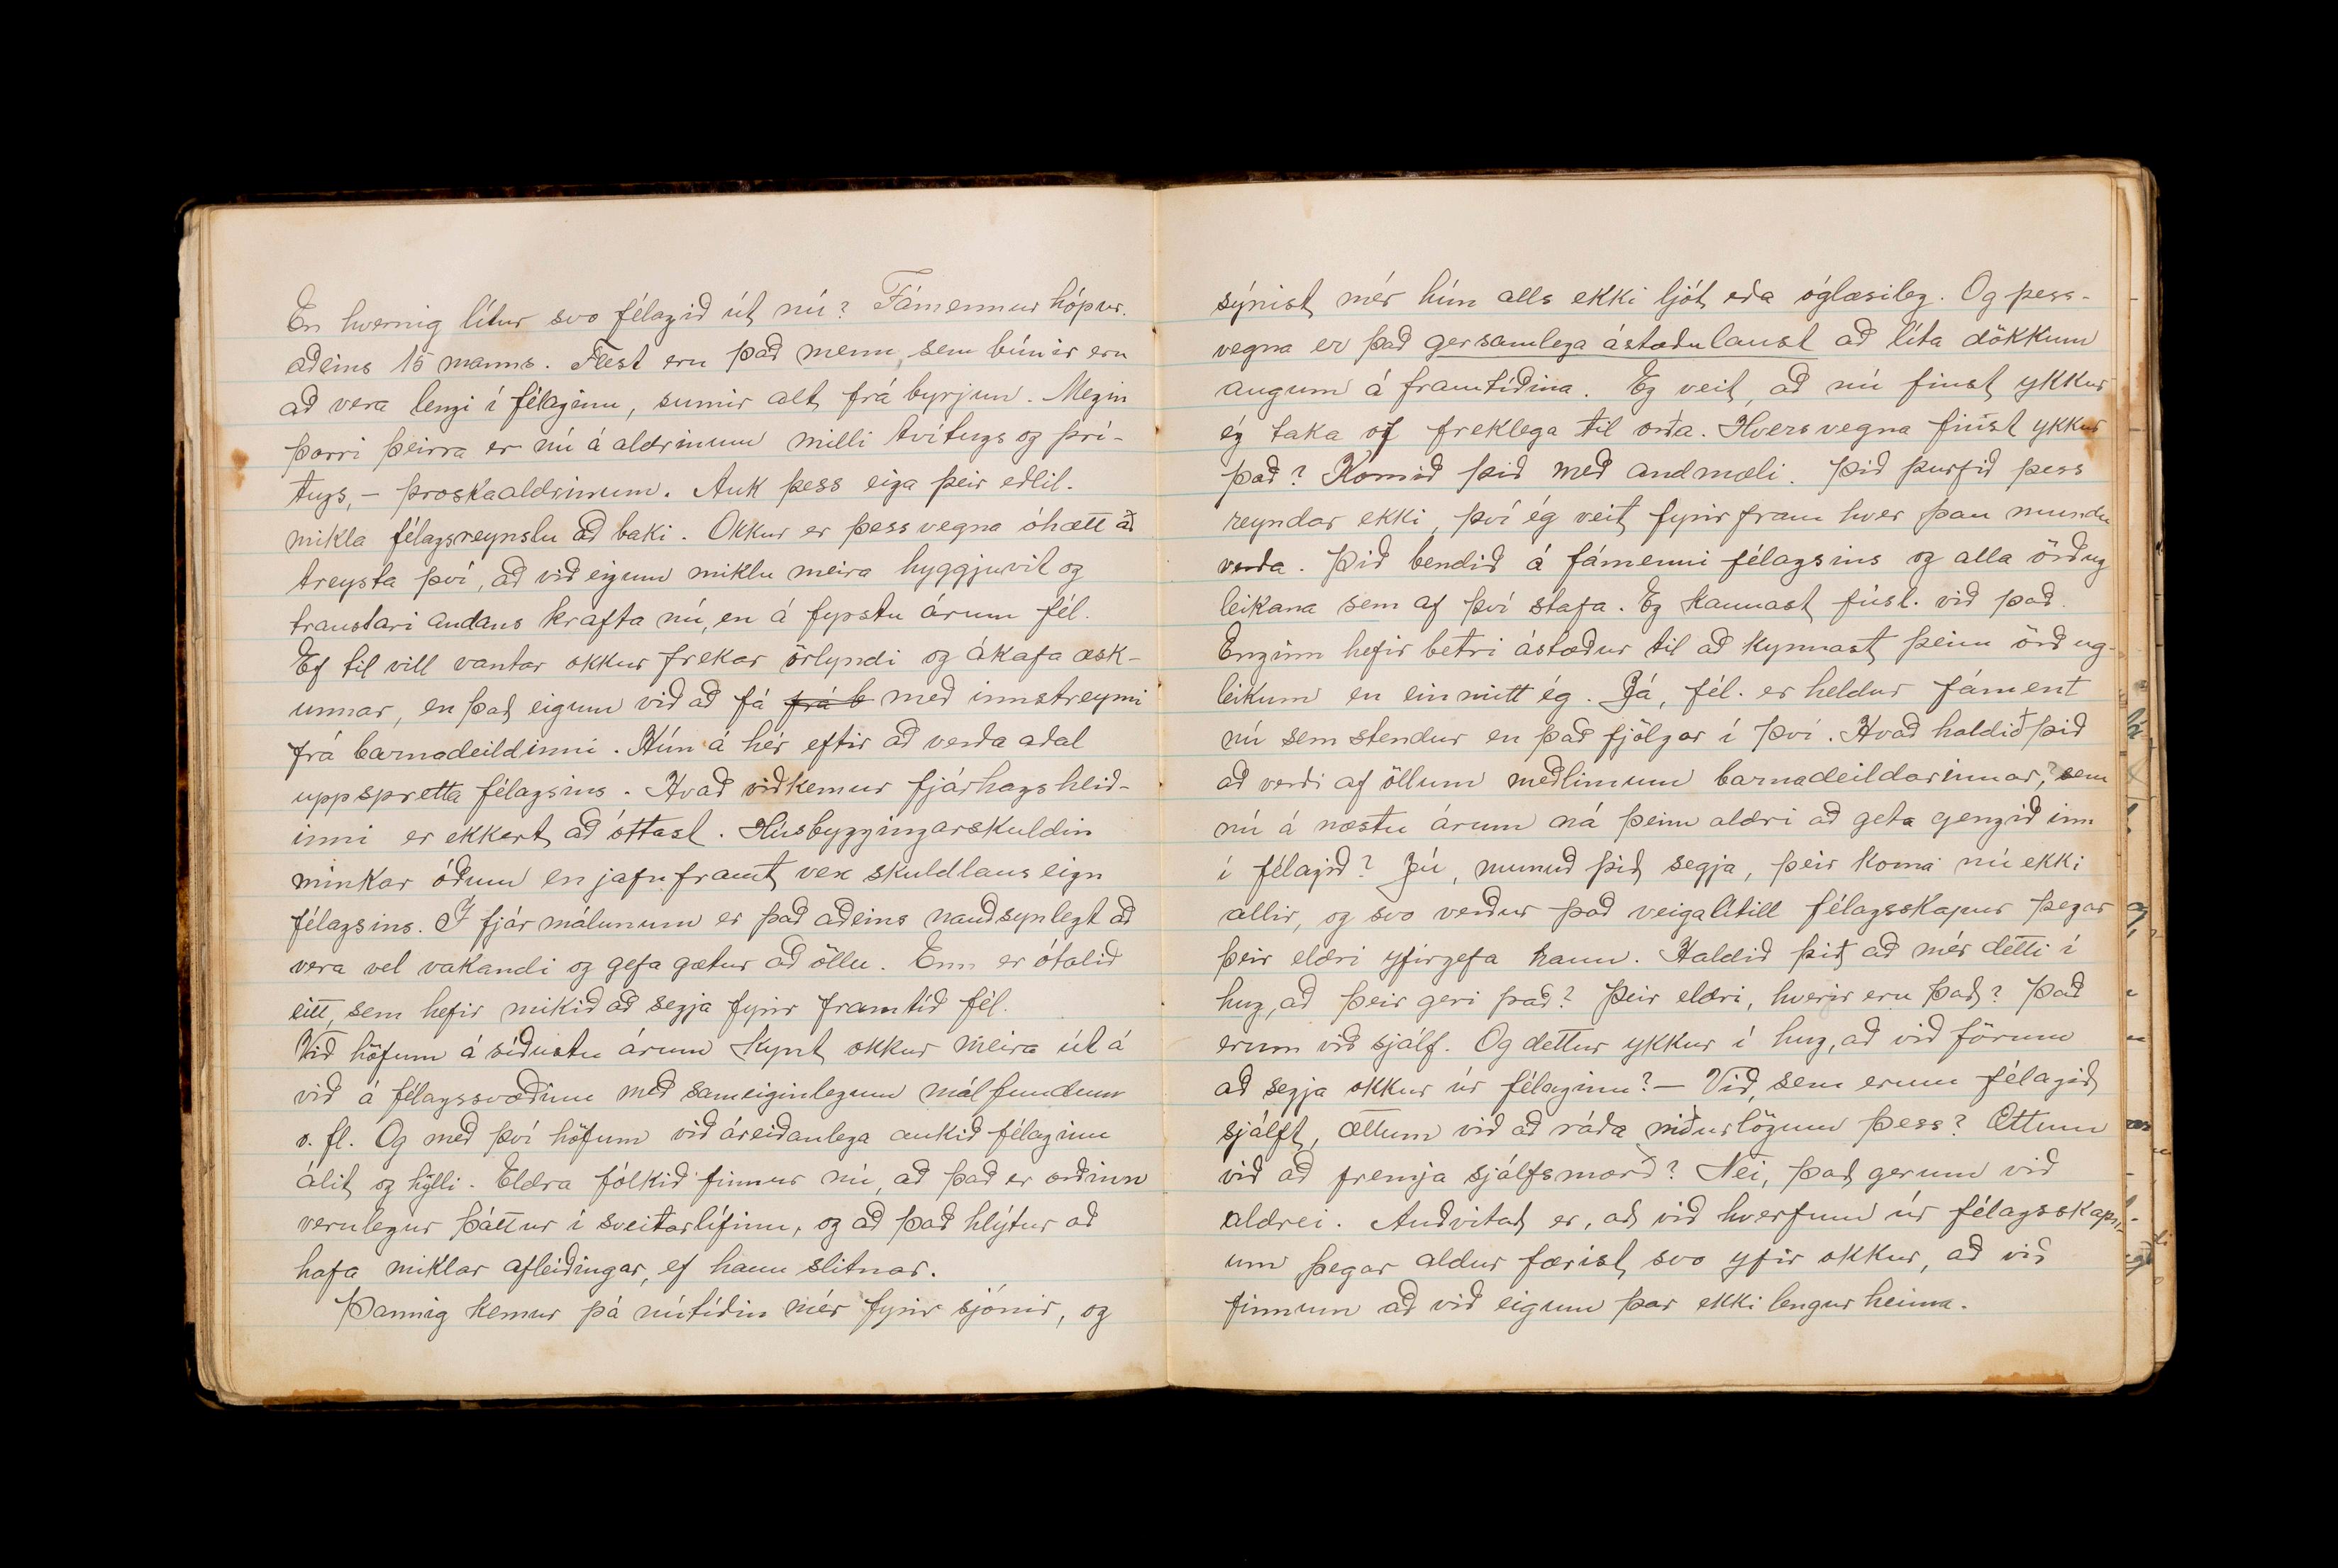 En hvernig lítur svo félagið út nú? Fámennur hópur.
aðeins 15 manns. Flest eru það menn, sem búnir eru
að vera lengi í félaginu, sumir alt frá byrjun. Megin
þorri þeirra er nú á aldrinum milli tvítugs og þrí-
tugs, – þroskaaldrinum. Auk þess eiga þeir eðlil.
mikla félagsreynslu að baki. Okkur er þess vegna óhætt að
treysta því, að við eigum miklu meira hyggjuvit og
traustari andans krafta nú, en á fyrstu árum fél.
Ef til vill vantar okkur frekar örlyndi og ákafa æsk-
unnar, en það eigum við að fá frá b með innstreymi
frá barnadeildinni. Hún á hér eftir að verða aðal
uppspretta félagsins. Hvað viðkemur fjárhagshlið-
inni er ekkert að óttast. Húsbyggingarskuldin
minkar óðum en jafnframt vex skuldlaus eign
félagsins. Í fjármálunum er það aðeins nauðsynlegt að
vera vel vakandi og gefa gætur að öllu. Enn er ótalið
eitt, sem hefir mikið að segja fyrir framtíð fél.
Við höfum á síðustu árum kynt okkur meira út á
við á félagssvæðinu með sameiginlegum málfundum
o. fl. Og með því höfum við áreiðanlega aukið félaginu
álit og hylli. Eldra fólkið finnur nú, að það er orðinn
verulegur þáttur í sveitarlífinu, og að það hlýtur að
hafa miklar afleiðingar, ef hann slitnar.
Þannig kemur þá nútíðin mér fyrir sjónir, og
sýnist mér hún alls ekki ljót eða óglæsileg. Og þess-
vegna er það gersamlega ástæðulaust að líta dökkum
augum á framtíðina. Eg veit, að nú finst ykkur
ég taka of freklega til orða. Hvers vegna finst ykkur
það? Komið þið með andmæli. Þið þurfið þess
reyndar ekki, því ég veit fyrir fram hver þau mundu
verða. Þið bendið á fámenni félagsins og alla örðug
leikana sem af því stafa. Eg kannast fúsl. við það.
Enginn hefir betri ástæður til að kynnast þeim örðug-
leikum en einmitt ég. Já, fél. er heldur fáment
nú sem stendur en það fjölgar í því. Hvað haldið þið
að verði af öllum meðlimum barnadeildarinnar,? sem
nú á næstu árum ná þeim aldri að geta gengið inn
í félagið? Jú, munuð þið segja, þeir koma nú ekki
allir, og svo verður það veigalítill félagsskapur þegar
þeir eldri yfirgefa hann. Haldið þið að mér detti í
hug, að þeir geri það? Þeir eldri, hverir eru það? Það
erum við sjálf. Og dettur ykkur í hug, að við förum
að segja okkur úr félaginu? – Við, sem erum félagið
sjálft, ættum við að ráða niðurlögum þess? Ættum
við að fremja sjálfsmorð? Nei, það gerum við
aldrei. Auðvitað er, að við hverfum úr félagsskapn-
um þegar aldur færist svo yfir okkur, að við
finnum að við eigum þar ekki lengur heima.